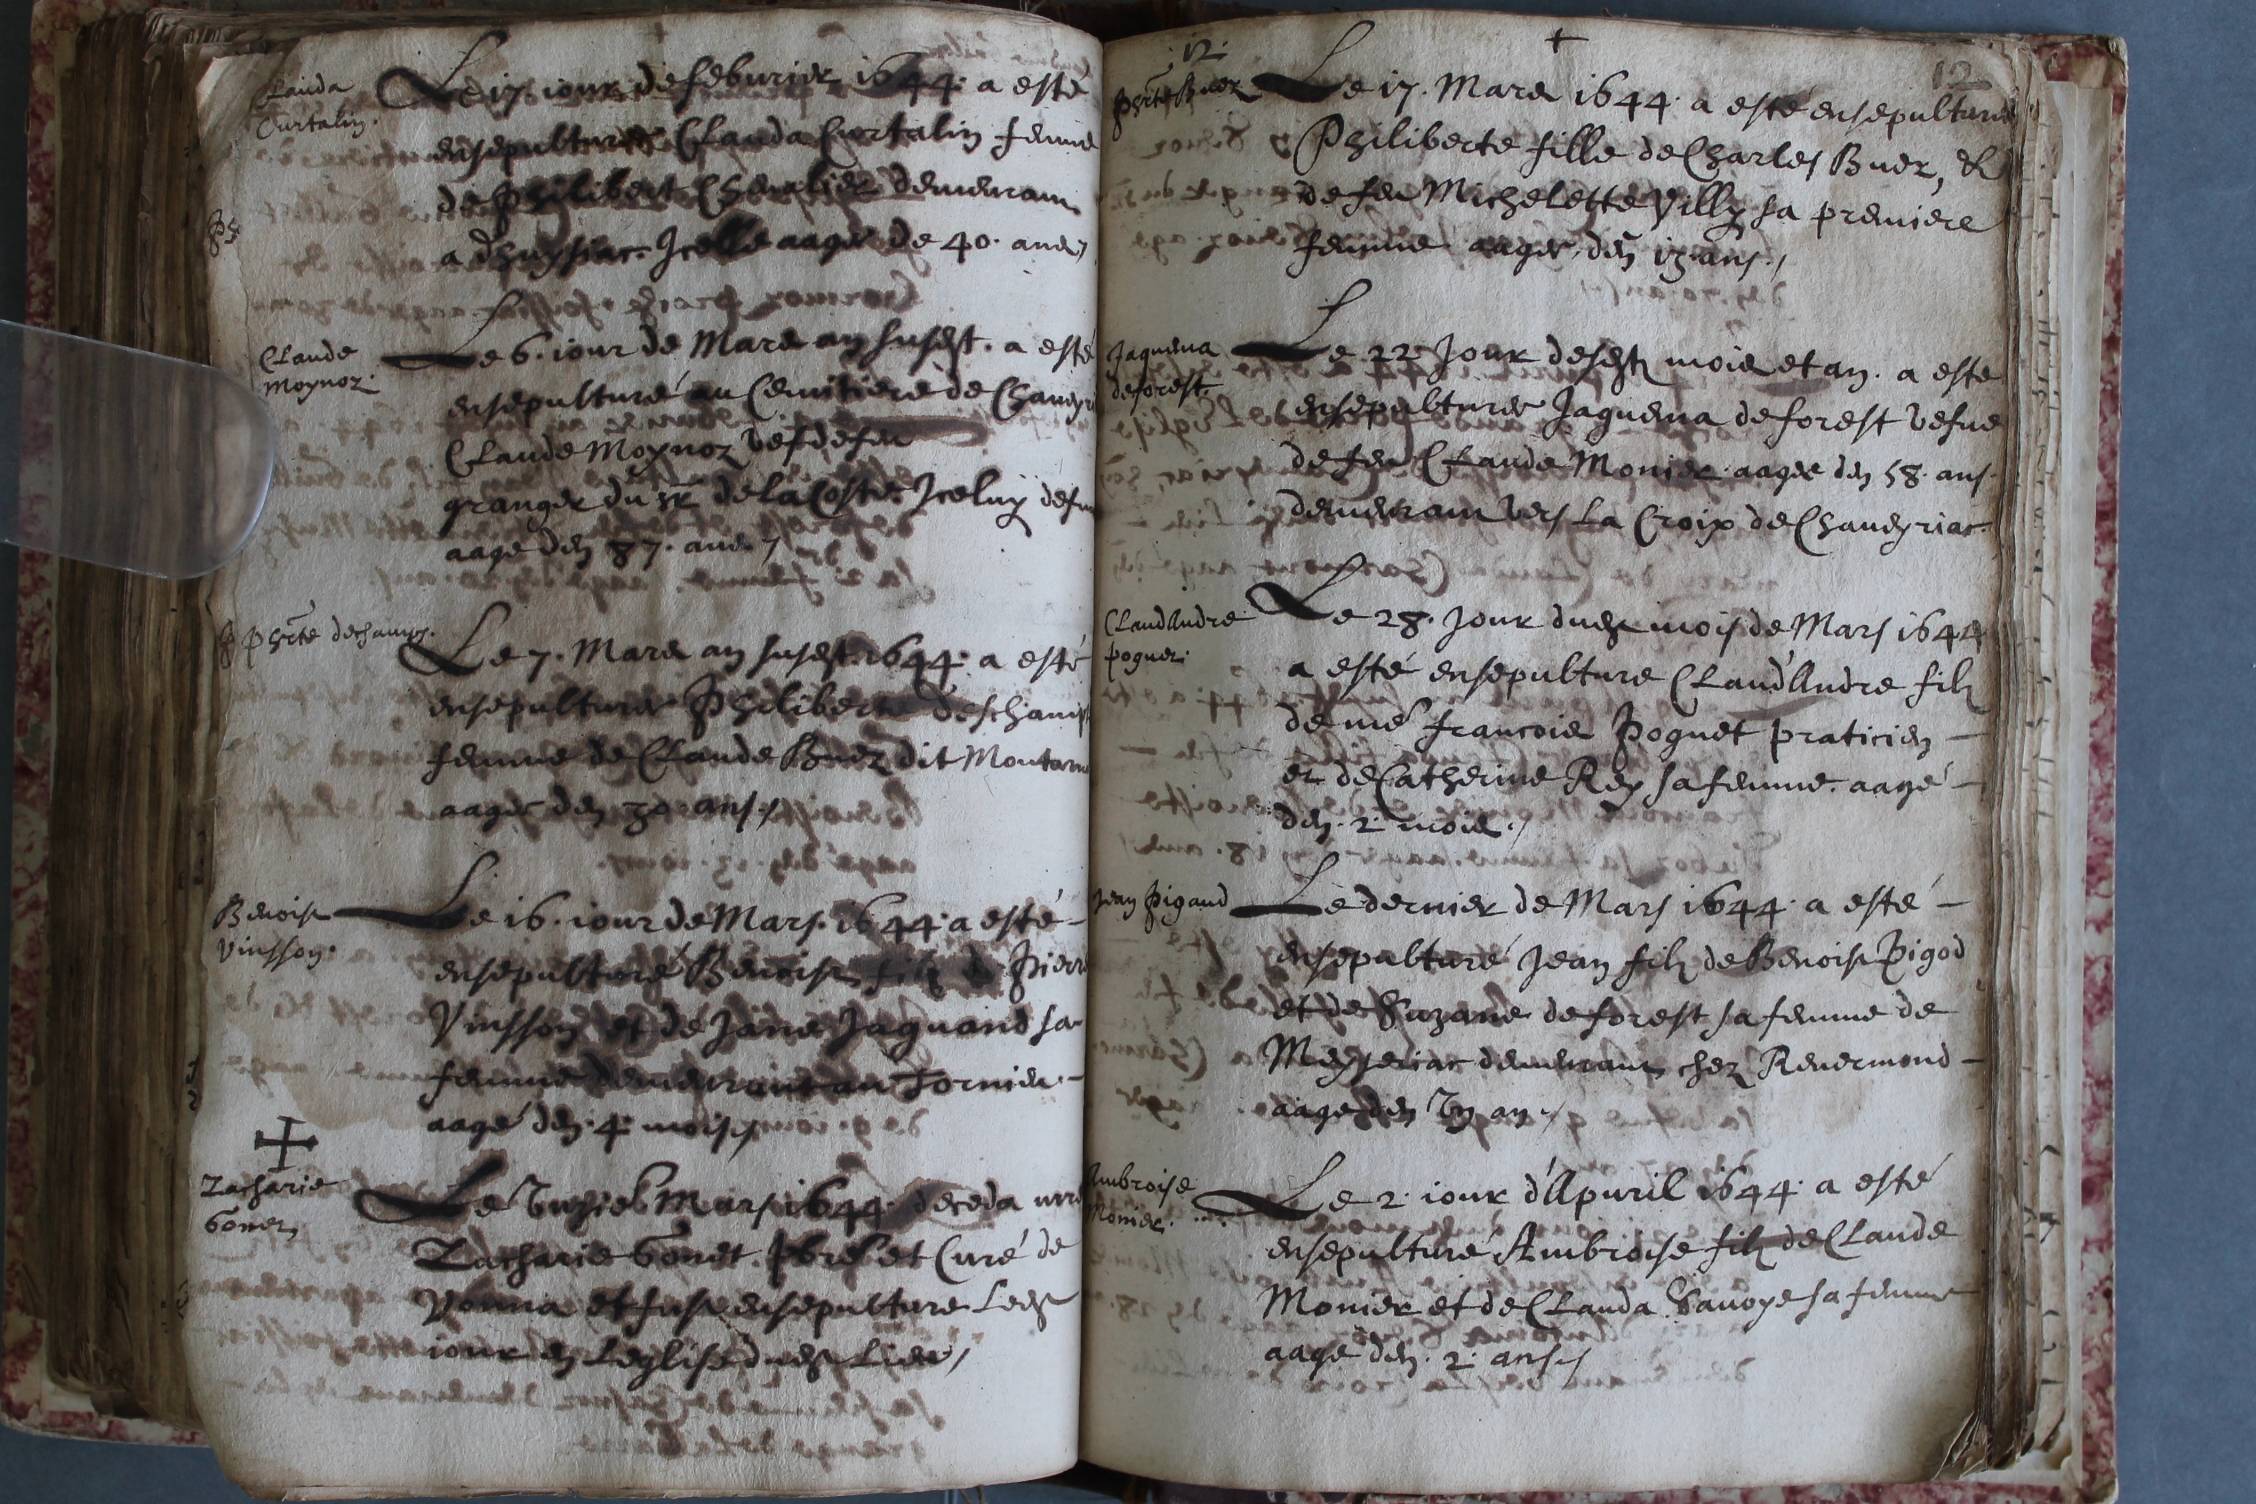 Clauda
Curtalin.
Le 17. iour de feburier 1644. a esté
ensepulturée Clauda Curtalin femme
de Philibert Chevalier demeurant
a dhuysiac. Icelle aagee de 40. ans
Claude
Moynoz.
Le 6. iour de Mars an susdt. a esté
ensepulturé au Cemitiere de Chaveyri
Claude Moynoz vefde feu
granger du sr de la Coste. Iceluy defun
aagé den 87. ans
Phrte deschamps.
Le 7. Mars an susdt. 1644. a esté
ensepulturee Philiberte deschamps
femme de Claude Buez dit Montarn
aagee den 30. ans
Benoist
Vinsson.
Le 16. iour de Mars. 1644. a esté
ensepulturé Benoist filz de Pierre
Vinsson et de Jane Jaquand sa
femme demeurant au Tornier
aagé den. 4. mois
Zacharie
Gonet
Le Mars 1644. deceda
Zacharie Gonet. pbre et Curé de
Vonna et fust ensepulture ledt
iour en Leglise dudt Lieu
12.
12
Phrte Buez
Le 17. Mars 1644. a esté ensepulturee
Philiberte fille de Charles Buez, &
de feu Michelette Villy sa premiere
femme aagee. den 13. ans.
Jaquema
deforest.
Le 22 Jour desdt mois et an. a esté
ensepulturee Jaquema deforest vefue
de feu Claude Monier aagee den 58. ans.
demeurant vers La Croix de Chaveyriac.
Claudandre
poguet.
Le 28. Jour dudt mois de Mars 1644
a esté ensepulture Claud'Andre filz
de me francois Poguet praticien
et de Catherine Rey sa femme. aagé
den. 2. mois.
Jean Pigaud
Le dernier de Mars 1644. a esté
ensepulturé Jean filz de Benoist Pigod
et de Suzane deforest sa femme de
Meyseriac demeurant chez Revermond
aagé den un an.
Ambroise
Monier.
Le 2. iour d'Apuril 1644. a esté
ensepulturé Ambroise filz de Claude
Monier et de Clauda Savoye sa femme
aagé den. 2. ans